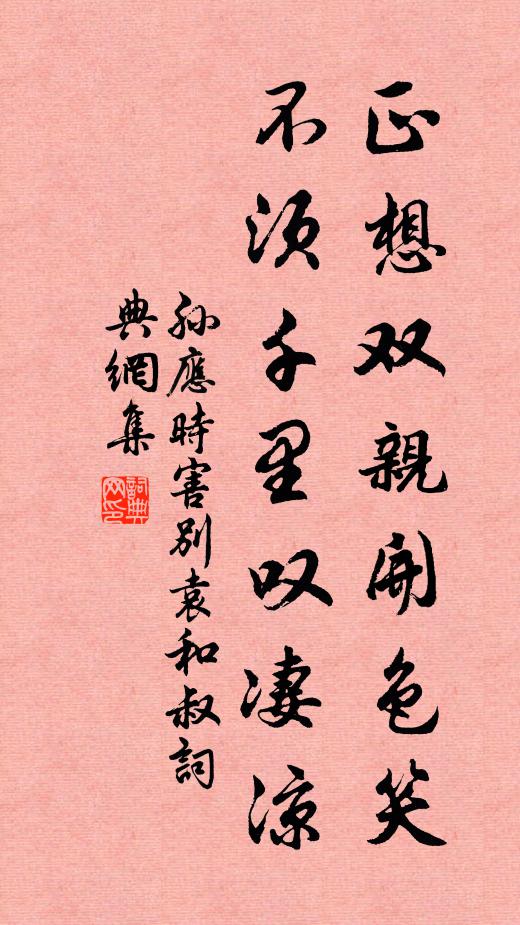 正想双親開色笑
不须千里叹凄涼
孙應時害别袁和叔詞
典網集
詞典网印